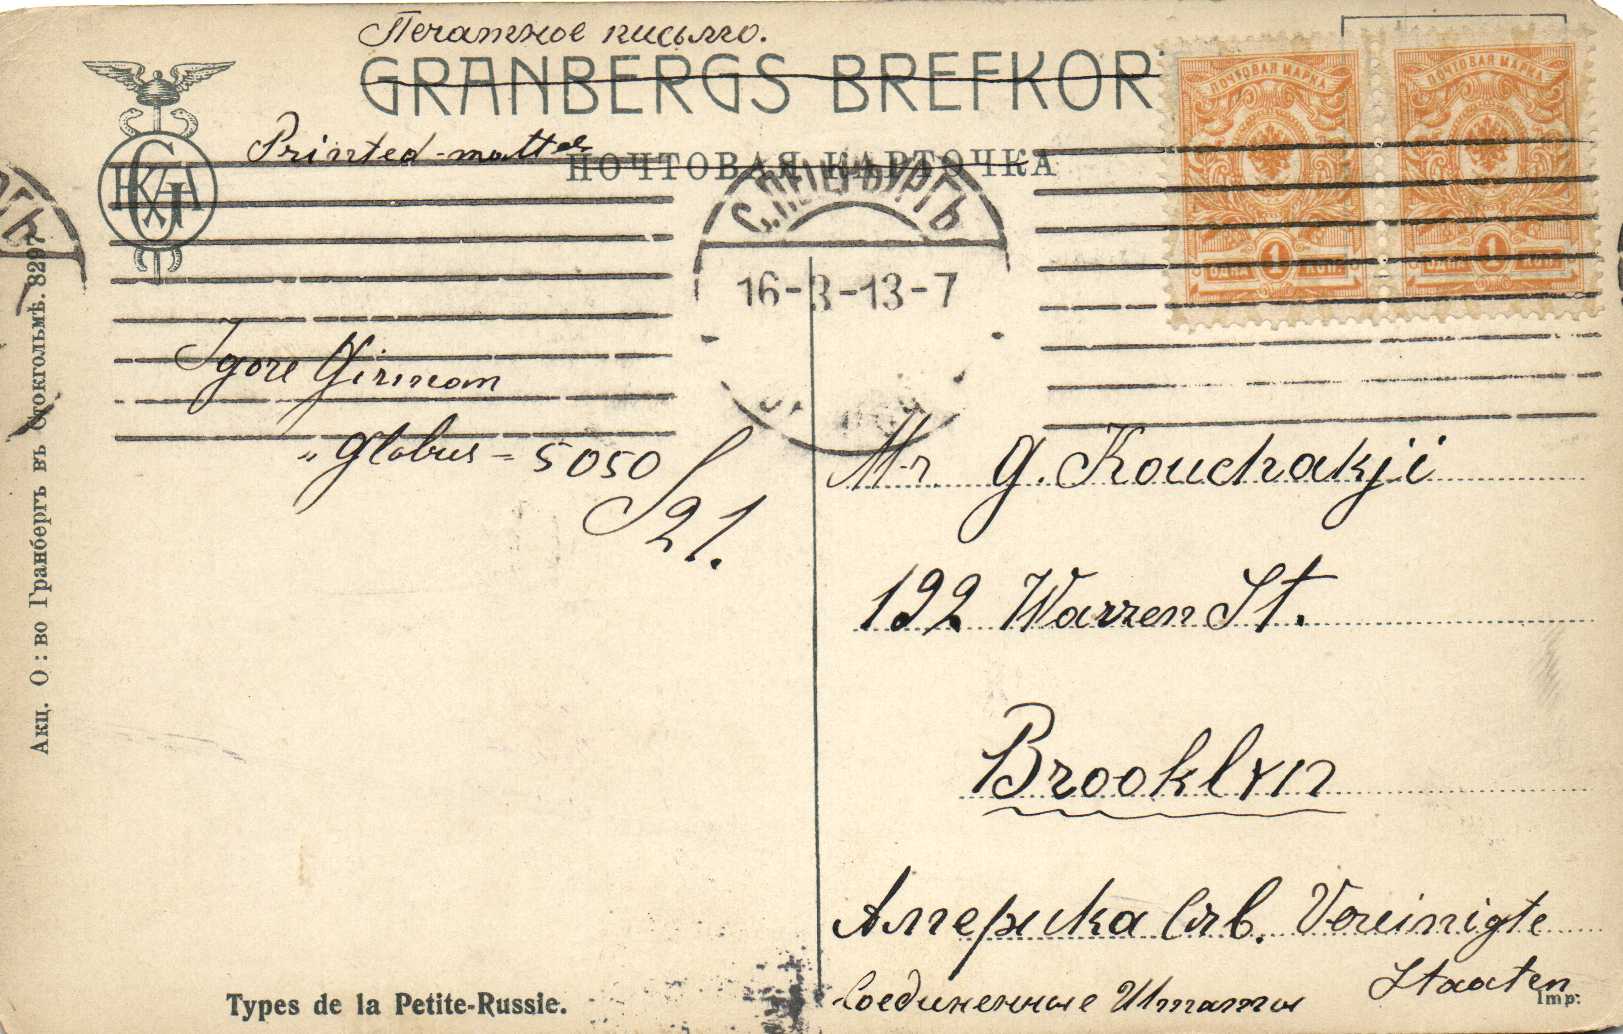 Печатное письмо.
GRANBERGS BREFKOR
Printed-matter
ПОЧТОВАЯ КАРТОЧКА
ПОЧТОВАЯ МАРКА
ОДНА 1 КОП.
ПОЧТОВАЯ МАРКА
ОДНА 1 КОП.
С.ПЕТЕРБУРГЪ
16-3-13-7
Igore Girman
„Globus“ 5050
21.
Mr. G. Kouchakji
122 Warren St.
Brooklyn
Америка Сѣв. Vereinigte
Соединенные Штаты Staaten
Акц. О:во Гранбергъ въ Стокгольмѣ. 8297
Types de la Petite-Russie.
Imp: